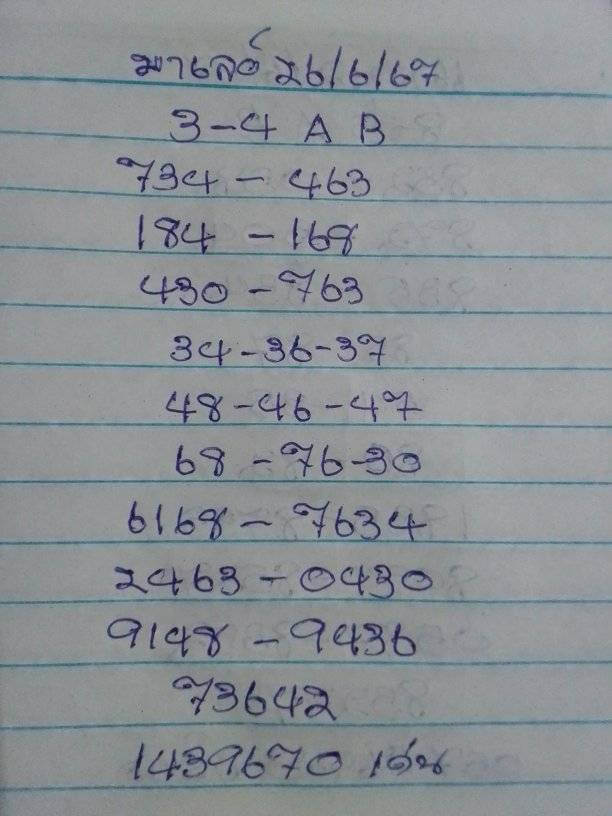 มาเลย์ 26/6/67
3-4 A B
734 - 463
184 - 168
430 - 763
34-36-37
48-46-47
68-76-30
6168 - 7634
2463 - 0430
9148 - 9436
73642
1439670 เด่น